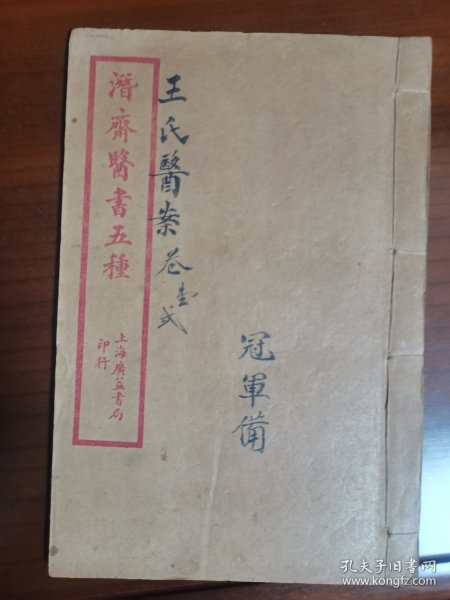 潛齋醫書五種
上海廣益書局
印行
王氏醫案卷壹弍
冠軍備
孔夫子旧书网
www.kongfz.com